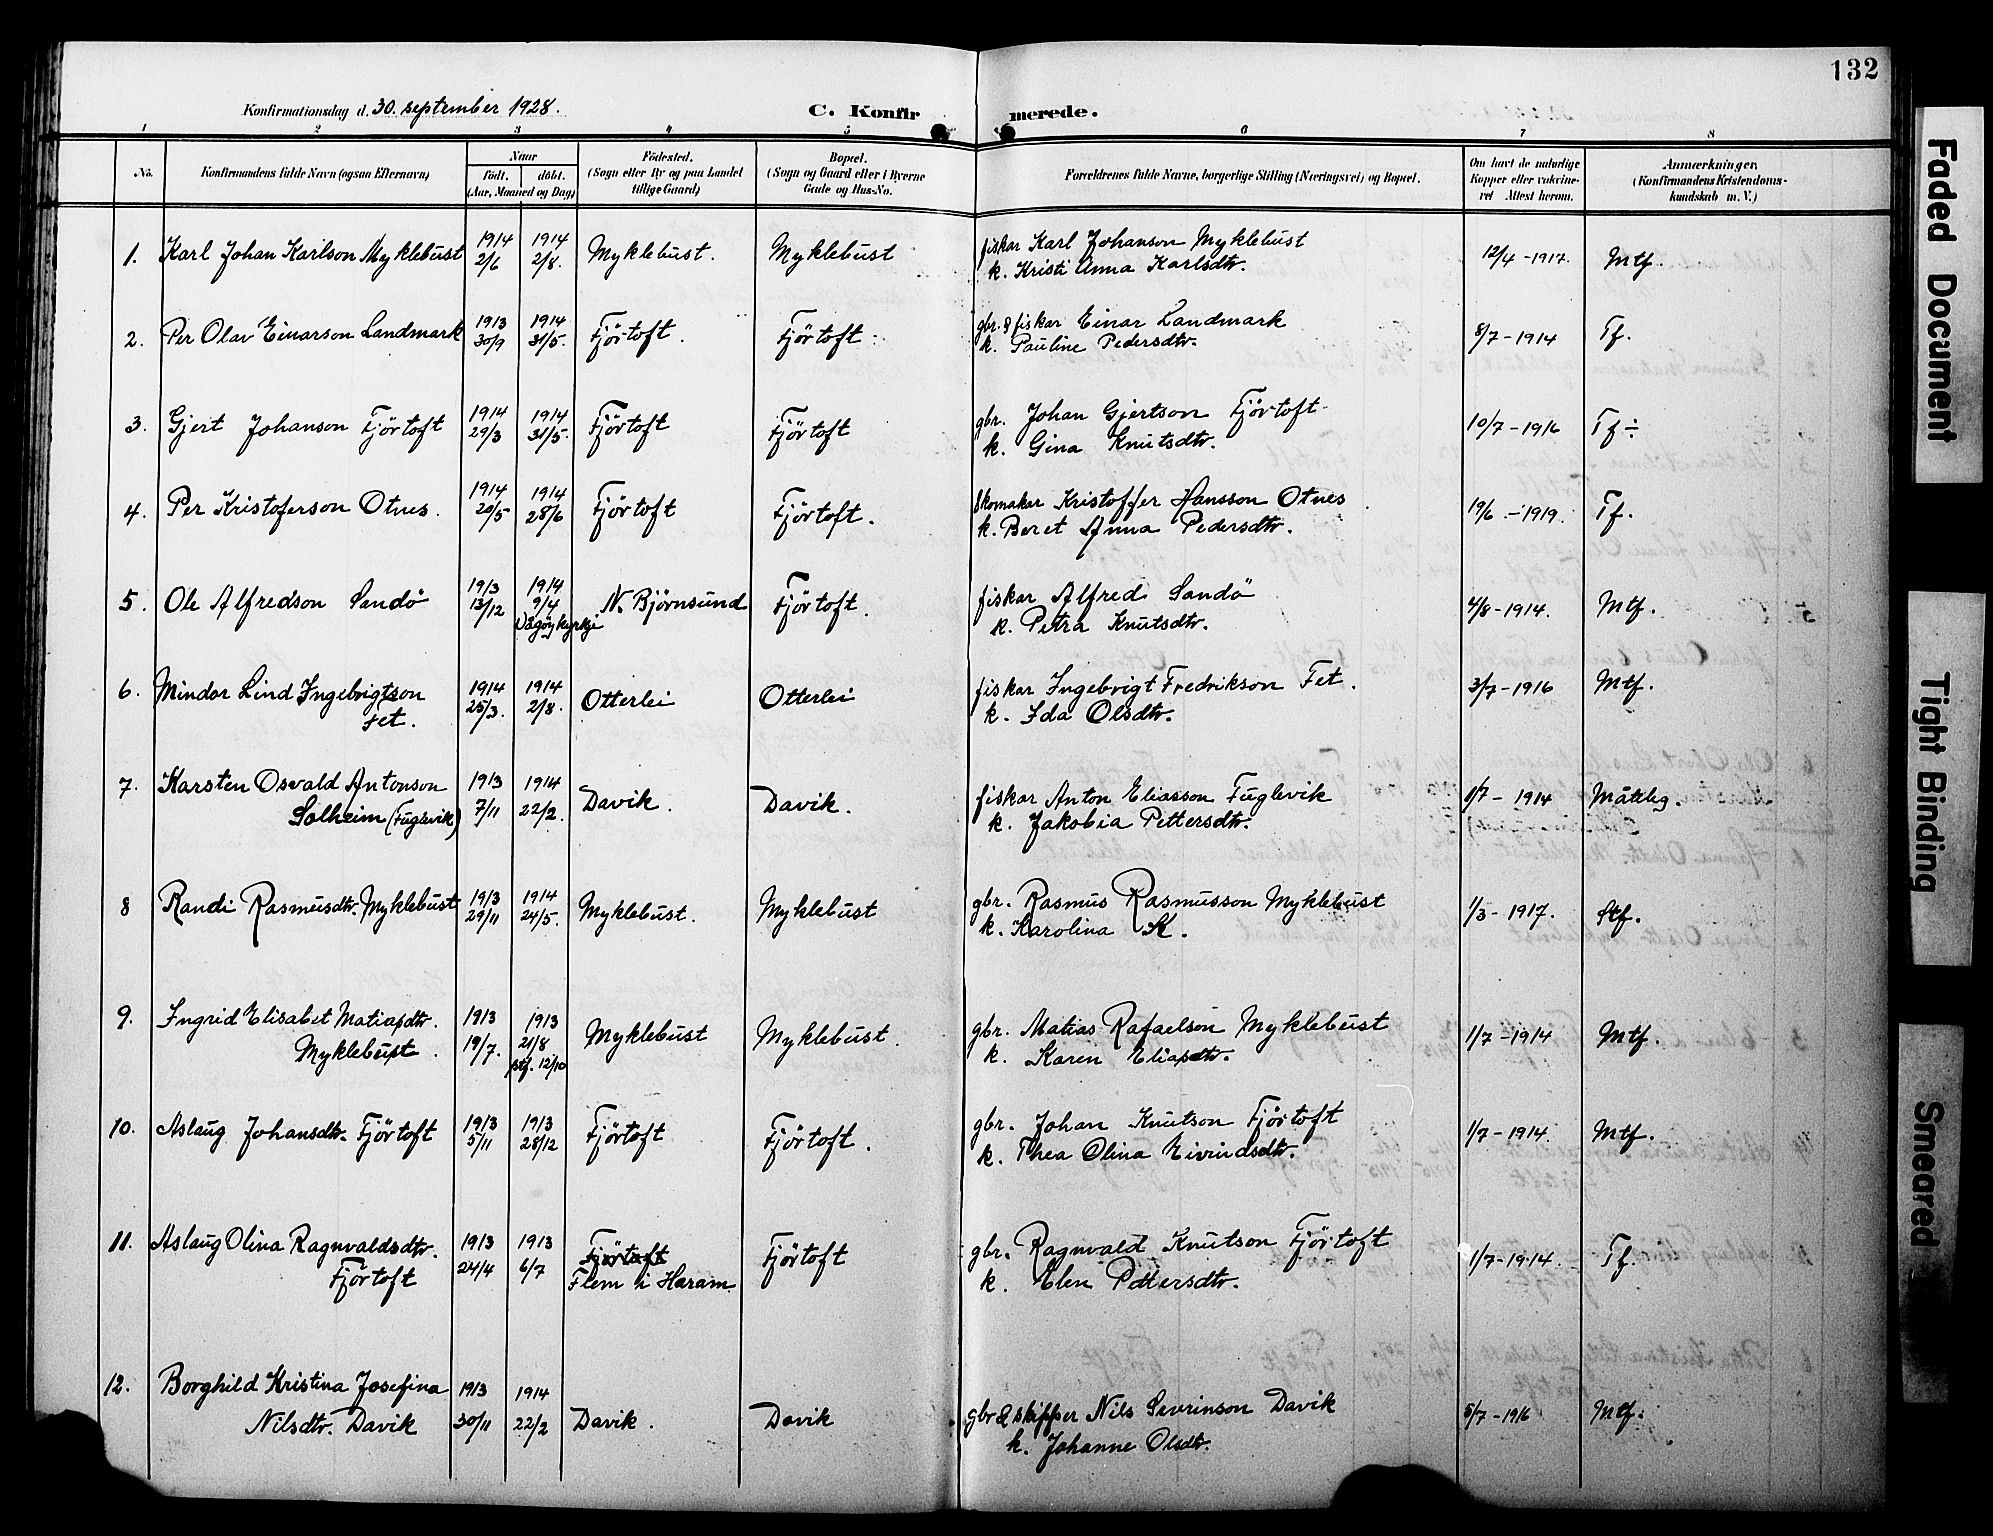 132
Konfirmationsdag d. 30. september 1928. C. Konfirmerede.
1 2 3 4 5 6 7 8
No. Konfirmandens fulde Navn (ogsaa Efternavn) Naar født. døbt. (Aar, Maaned og Dag) Födested. (Sogn eller By og paa Landet tillige Gaard) Bopæl. (Sogn og Gaard eller i Byerne Gade og Hus-No. Forældrenes fulde Navne, borgerlige Stilling (Næringsvei) og Bopæl. Om havt de naturlige Kopper eller vakcineret Attest herom. Anmærkninger. (Konfirmandens Kristendomskundskab m. V.)
1. Karl Johan Karlson Myklebust 1914 2/6 1914 2/8. Myklebust. Myklebust fiskar Karl Johanson Myklebust 12/4 - 1917. Mtf.
k. Kristi Anna Karlsdtr.
2. Per Olav Einarson Landmark 1913 30/9 1914 31/5. Fjörtoft. Fjörtoft. gbr. & fiskar Einar Landmark 8/7 - 1914 Tf.
k. Pauline Pedersdtr.
3. Gjert Johanson Fjörtoft 1914 29/3 1914 31/5. Fjörtoft Fjörtoft gbr. Johan Gjertson Fjörtoft 10/7 - 1916 Tf ÷
k. Gina Knutsdtr.
4. Per Kristoferson Otnes. 1914 20/5 1914 28/6 Fjörtoft Fjörtoft. Skomakar Kristoffer Hansson Otnes 19/6. - 1919. Tf.
k. Beret Anna Pedersdtr.
5. Ole Alfredson Sandö 1913 13/12 1914 9/4 Vågöy kyrkje N. Björnsund Fjörtoft. fiskar Alfred Sandö 4/8 - 1914. Mtf.
k. Petra Knutsdtr.
6. Mindor Lind Ingebrigtson 1914 25/3. 1914 2/8. Otterlei Otterlei fiskar Ingebrigt Fredrikson Fet. 3/7 - 1916 Mtf.
Fet. k. Ida Olsdtr.
7. Karsten Osvald Antonson 1913 7/11 1914 22/2. Davik. Davik. fiskar Anton Eliasson Fuglevik 1/7 - 1914 Måteleg.
Solheim (Fuglevik) k. Jakobia Pettersdtr.
8 Randi Rasmusdtr. Myklebust 1913 29/11 1914 24/5. Myklebust. Myklebust gbr. Rasmus Rasmusson Myklebust 1/3 - 1917. Stf.
k. Karolina K.
9. Ingrid Elisabet Matiasdtr. 1913 19/7. 1913 21/8 stf. 12/10 Myklebust Myklebust. gbr. Matias Rafaelson Myklebust 1/7 - 1914 Mtf.
Myklebust. k. Karen Eliasdtr.
10. Aslaug Johansdtr. Fjörtoft 1913 5/11 1913 28/12 Fjörtoft Fjörtoft. gbr. Johan Knutson Fjörtoft 1/7 - 1914. Mtf.
k. Thea Olina Eivindsdtr.
11. Aslaug Olina Ragnvaldsdtr. 1913 24/4 1913 6/7 Fjörtoft Fjörtoft gbr. Ragnvald Knutson Fjörtoft 1/7 - 1914. Tf.
Fjörtoft Flem i Haram. k. Elen Pettersdtr.
12. Borghild Kristina Josefina 1913 30/11 1914 22/2 Davik. Davik gbr & skipper Nils Sevrinson Davik 5/7 - 1916 Mtf.
Nilsdtr. Davik k. Johanne Olsdtr.
Faded Document
Tight Binding
Smeared